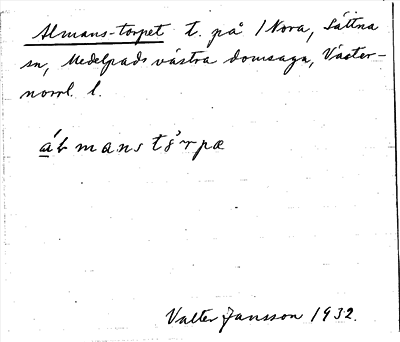 Almans-torpet t. på 1 Nora, Sättna
sn, Medelpads västra domsaga, Väster-
norrl. l.
Valter Jansson 1932.